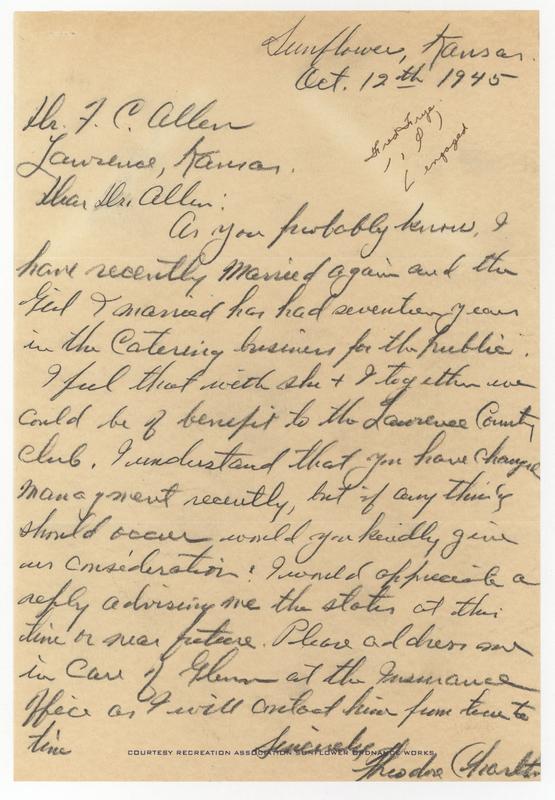 Sunflower, Kansas.
Oct. 12th 1945
Dr. F. C. Allen
Lawrence, Kansas.
Fred Frye
engaged
Dear Dr. Allen:
As you probably know, I
have recently married again and the
Girl I married has had seventeen years
in the Catering business for the public.
I feel that with she + I together we
could be of benefit to the Lawrence County
Club. I understand that you have change
managment recently, but if any thing
should occur would you kindly give
us consideration? I would appreciate a
reply advising me the status at this
time or near future. Please address me
in Care of Glenn at the Insurance
Office as I will contact him from time to
time
Sincerely,
Theodore Charlton
COURTESY RECREATION ASSOCIATION SUNFLOWER ORDNANCE WORKS